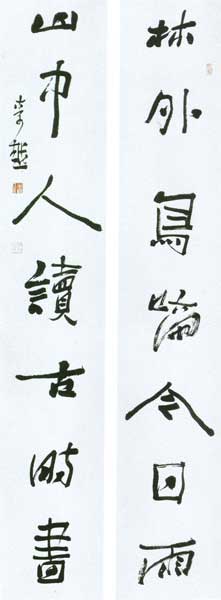 林外鳥啼今日雨
山中人讀古時書